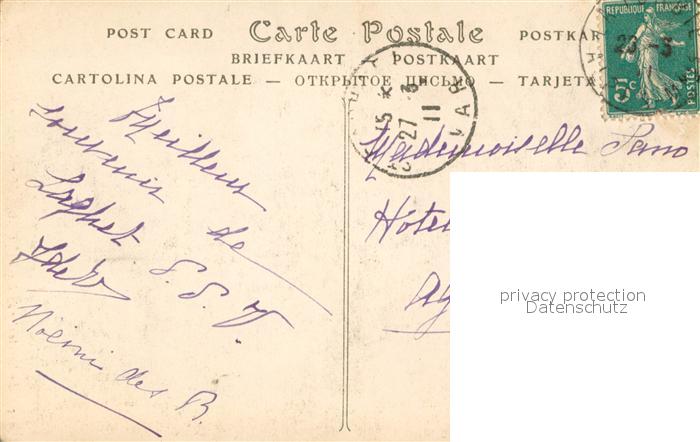 POST CARD Carte Postale POSTKAR
BRIEFKAART — POSTKAART
CARTOLINA POSTALE — ОТКРЫТОЕ ПИСЬМО — TARJETA
REPUBLIQUE FRANÇAISE
23 -3
5c
POSTES
15 *
27 -3
11
VAR
Meilleur
souvenir de
Laghet
S. S. V.
Noémi des R.
Mademoiselle Pano
Hôtel
privacy protection
Datenschutz